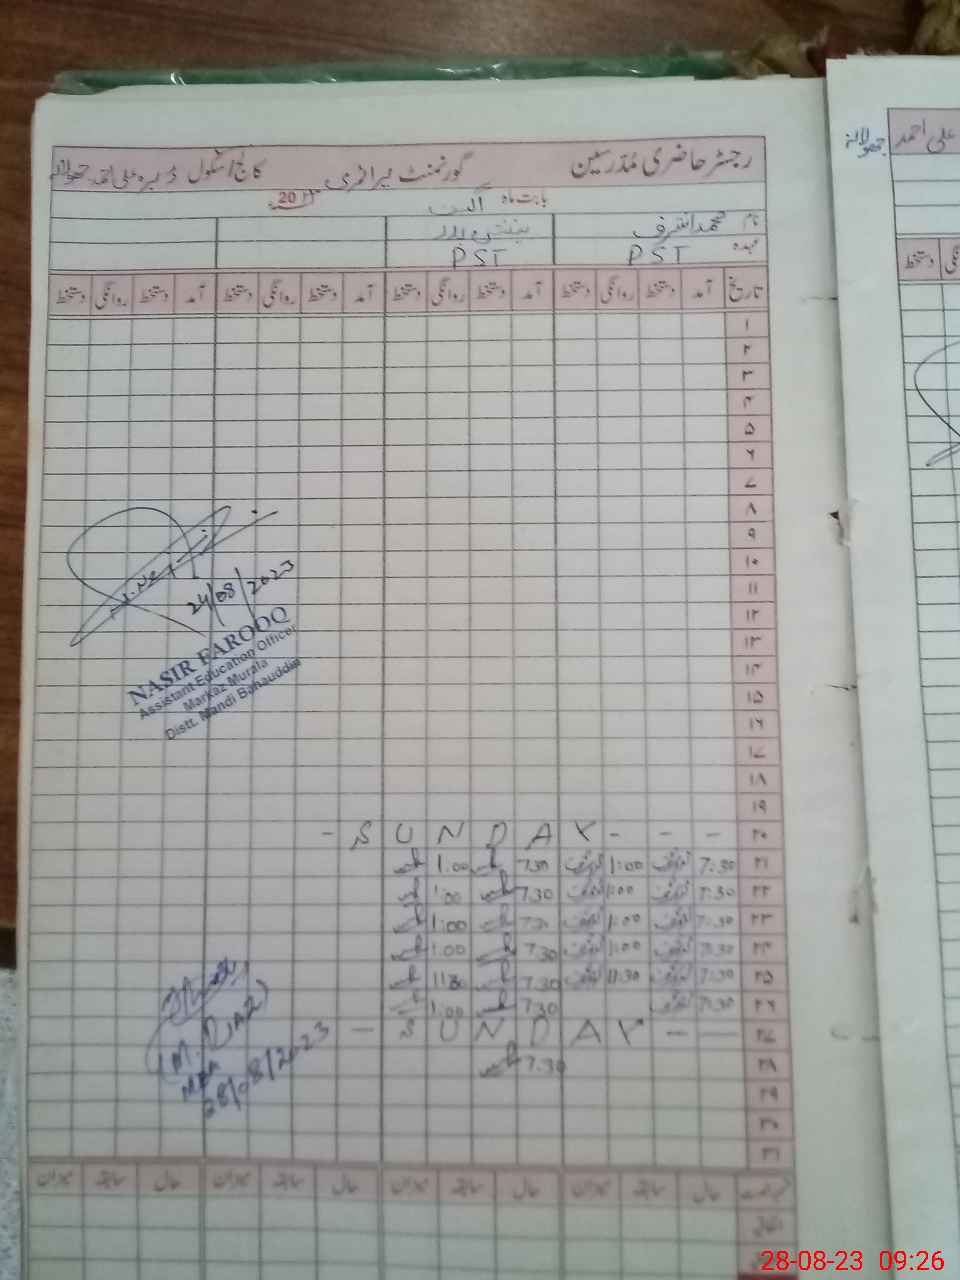 رجسٹر حاضری مُدرسین گورنمنٹ پرائمری کالج/سکول ڈیرہ علی احمد جھولانہ
بابت ماہ اگست 20۲۳
نام محمد اشرف
عہدہ PST PST
تاریخ آمد دستخط روانگی دستخط آمد دستخط روانگی دستخط آمد دستخط روانگی دستخط آمد دستخط روانگی دستخط
۱
۲
۳
۴
۵
۶
۷
۸
۹
۱۰
۱۱
۱۲
۱۳
۱۴
۱۵
۱۶
۱۷
۱۸
۱۹
۲۰ - SUNDAY - - -
۲۱ 7:30 اشرف 1:00 اشرف 7.30 1:00
۲۲ 7:30 اشرف 1:00 اشرف 7.30 1:00
۲۳ 7:30 اشرف 1:00 اشرف 7.30 1:00
۲۴ 7:30 اشرف 1:00 اشرف 7.30 1:00
۲۵ 7:30 اشرف 11:30 اشرف 7.30 11:30
۲۶ 7:30 اشرف 7.30 1:00
۲۷ - SUNDAY - -
۲۸ 7.30
۲۹
۳۰
۳۱
24/08/2023
NASIR FAROOQ
Assistant Education Officer
Markaz Murala
Distt. Mandi Bahauddin
(M. RIAZ)
MEA
28/08/2023
حال سابقہ میزان حال سابقہ میزان حال سابقہ میزان حال سابقہ میزان
اتفاقیہ
علی احمد جھولانہ
دستخط
28-08-23 09:26